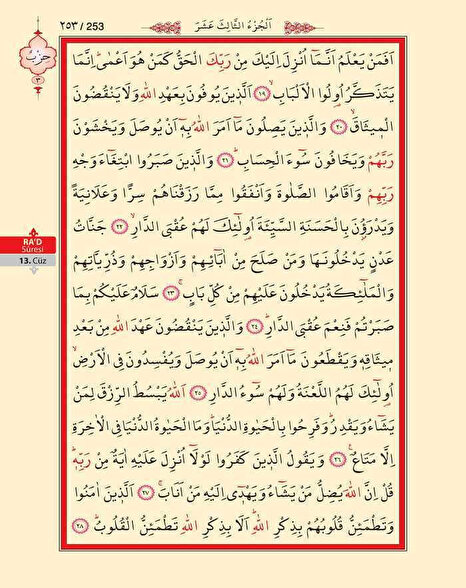 ٢٥٣ / 253
اَلْجُزْءُ الثَّالِثَ عَشَرَ
حِزْب
٣
اَفَمَنْ يَعْلَمُ اَنَّمَٓا اُنْزِلَ اِلَيْكَ مِنْ رَبِّكَ الْحَقُّ كَمَنْ هُوَ اَعْمٰىۜ اِنَّمَا
يَتَذَكَّرُ اُو۬لُوا الْاَلْبَابِۙ ﴿١٩﴾ اَلَّذ۪ينَ يُوفُونَ بِعَهْدِ اللّٰهِ وَلَا يَنْقُضُونَ
الْم۪يثَاقَۙ ﴿٢٠﴾ وَالَّذ۪ينَ يَصِلُونَ مَٓا اَمَرَ اللّٰهُ بِه۪ٓ اَنْ يُوصَلَ وَيَخْشَوْنَ
رَبَّهُمْ وَيَخَافُونَ سُٓوءَ الْحِسَابِۜ ﴿٢١﴾ وَالَّذ۪ينَ صَبَرُوا ابْتِغَٓاءَ وَجْهِ
رَبِّهِمْ وَاَقَامُوا الصَّلٰوةَ وَاَنْفَقُوا مِمَّا رَزَقْنَاهُمْ سِرًّا وَعَلَانِيَةً
وَيَدْرَؤُ۫نَ بِالْحَسَنَةِ السَّيِّئَةَ اُو۬لٰٓئِكَ لَهُمْ عُقْبَى الدَّارِۙ ﴿٢٢﴾ جَنَّاتُ
عَدْنٍ يَدْخُلُونَهَا وَمَنْ صَلَحَ مِنْ اٰبَٓائِهِمْ وَاَزْوَاجِهِمْ وَذُرِّيَّاتِهِمْ
وَالْمَلٰٓئِكَةُ يَدْخُلُونَ عَلَيْهِمْ مِنْ كُلِّ بَابٍۚ ﴿٢٣﴾ سَلَامٌ عَلَيْكُمْ بِمَا
صَبَرْتُمْ فَنِعْمَ عُقْبَى الدَّارِۜ ﴿٢٤﴾ وَالَّذ۪ينَ يَنْقُضُونَ عَهْدَ اللّٰهِ مِنْ بَعْدِ
م۪يثَاقِه۪ وَيَقْطَعُونَ مَٓا اَمَرَ اللّٰهُ بِه۪ٓ اَنْ يُوصَلَ وَيُفْسِدُونَ فِي الْاَرْضِۙ
اُو۬لٰٓئِكَ لَهُمُ اللَّعْنَةُ وَلَهُمْ سُٓوءُ الدَّارِ ﴿٢٥﴾ اَللّٰهُ يَبْسُطُ الرِّزْقَ لِمَنْ
يَشَٓاءُ وَيَقْدِرُۜ وَفَرِحُوا بِالْحَيٰوةِ الدُّنْيَاۜ وَمَا الْحَيٰوةُ الدُّنْيَا فِي الْاٰخِرَةِ
اِلَّا مَتَاعٌ۟ ﴿٢٦﴾ وَيَقُولُ الَّذ۪ينَ كَفَرُوا لَوْلَٓا اُنْزِلَ عَلَيْهِ اٰيَةٌ مِنْ رَبِّه۪ۜ
قُلْ اِنَّ اللّٰهَ يُضِلُّ مَنْ يَشَٓاءُ وَيَهْد۪ٓي اِلَيْهِ مَنْ اَنَابَۚ ﴿٢٧﴾ اَلَّذ۪ينَ اٰمَنُوا
وَتَطْمَئِنُّ قُلُوبُهُمْ بِذِكْرِ اللّٰهِۜ اَلَا بِذِكْرِ اللّٰهِ تَطْمَئِنُّ الْقُلُوبُۜ ﴿٢٨﴾
RA'D
Sûresi
13. Cüz